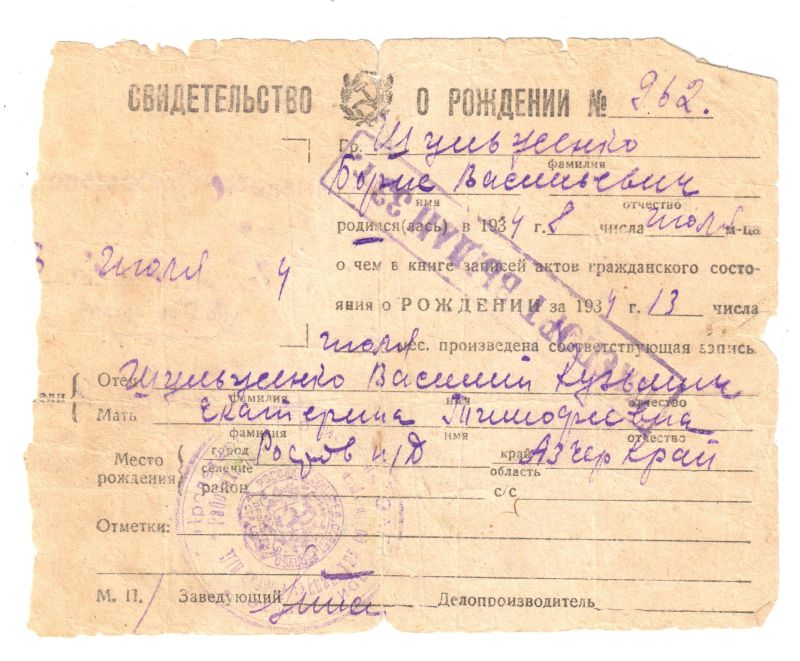 СВИДЕТЕЛЬСТВО О РОЖДЕНИИ № 962.
Гр. Шульженко
фамилия
Борис Васильевич
имя отчество
родился(лась) в 1934 г. 8 числа Июля м-ца
о чем в книге записей актов гражданского состо-
Июля 4
яния о РОЖДЕНИИ за 1934 г. 13 числа
июля мес. произведена соответствующая запись
Отец Шульженко Василий Кузьмич
фамилия имя отчество
Мать Екатерина Тимофеевна
фамилия имя отчество
Место рождения
город Ростов н/Д край АзЧер край
селение область
район с/с
Отметки:
М. П. Заведующий Делопроизводитель
ПАСПОРТ ВЫДАН